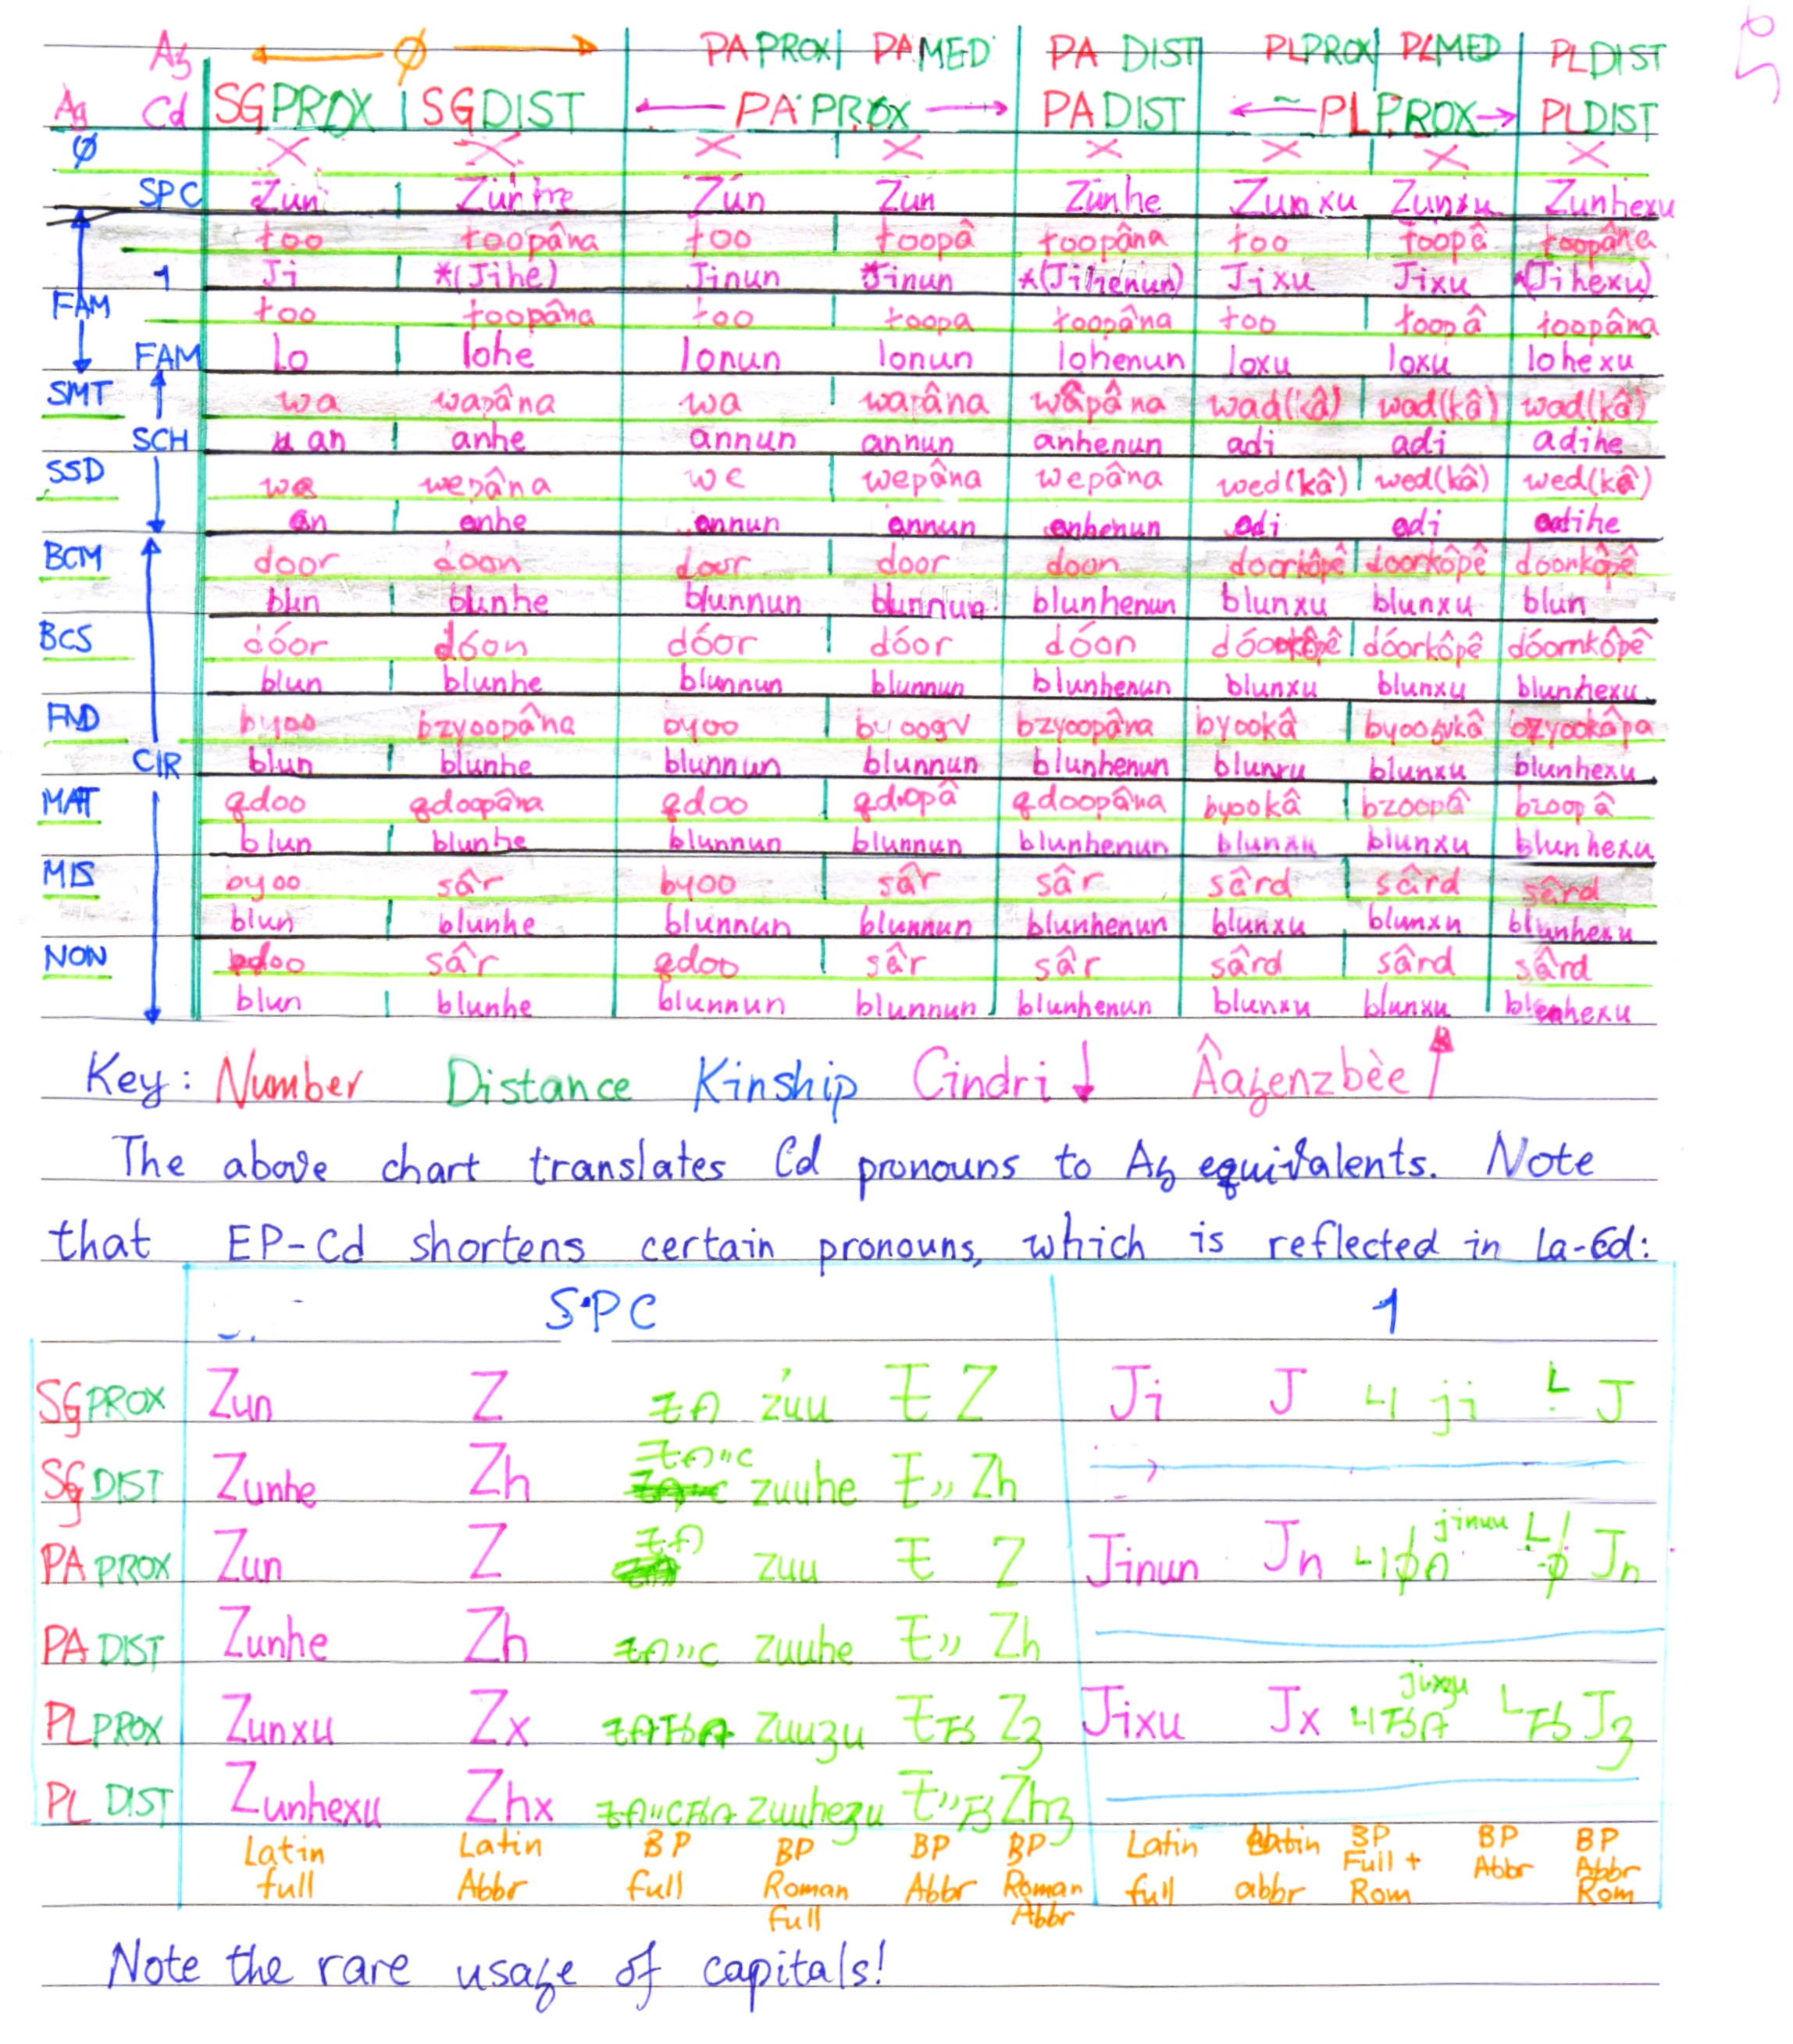 Aʒ ← Ø → PA PROX PA MED PA DIST PLPROX PLMED PLDIST
Ag Cd SGPROX SGDIST ← PA PROX → PADIST ← PLPROX → PLDIST
Ø X X X X X X X X
SPC Zun Zunhe Zun Zun Zunhe Zunxu Zunxu Zunhexu
too toopâna too toopâ toopâna too toopâ toopâna
1 Ji *(Jihe) Jinun Jinun *(Jihenun) Jixu Jixu *(Jihexu)
FAM too toopâna too toopa toopâna too toopâ toopâna
FAM Lo lohe lonun lonun lohenun loxu loxu lohexu
SMT wa wapâna wa wapâna wapâna wad(kâ) wad(kâ) wad(kâ)
SCH an anhe annun annun anhenun adi adi adihe
SSD we wepâna we wepâna wepâna wed(kâ) wed(kâ) wed(kâ)
an anhe annun annun anhenun adi adi adihe
BCM door doon door door doon doorkôpê doorkôpê doonkôpê
blun blunhe blunnun blunnun blunhenun blunxu blunxu blun
BCS dóor dóon dóor dóor dóon dóorkôpê dóorkôpê dóonkôpê
blun blunhe blunnun blunnun blunhenun blunxu blunxu blunhexu
FND byoo bzyoopâna byoo byoogv bzyoopâna byookâ byoogvkâ bzyookâpa
CIR blun blunhe blunnun blunnun blunhenun blunxu blunxu blunhexu
MAT qdoo qdoopâna qdoo qdoopâ qdoopâna byookâ bzoopâ bzoopâ
blun blunhe blunnun blunnun blunhenun blunxu blunxu blunhexu
MIS byoo sâr byoo sâr sâr sârd sârd sârd
blun blunhe blunnun blunnun blunhenun blunxu blunxu blunhexu
NON qdoo sâr qdoo sâr sâr sârd sârd sârd
blun blunhe blunnun blunnun blunhenun blunxu blunxu blunhexu
Key: Number Distance Kinship Cindri ↓ Âaʒenzbèe ↑
The above chart translates Cd pronouns to Aʒ equivalents. Note
that EP-Cd shortens certain pronouns, which is reflected in La-Cd:
SPC 1
SGPROX Zun Z zuu Z Ji J ji J
SGDIST Zunhe Zh zuuhe Zh
PAPROX Zun Z zuu Z Jinun Jn jinuu Jn
PADIST Zunhe Zh zuuhe Zh
PLPROX Zunxu Zx zuuʒu Zʒ Jixu Jx jixʒu Jʒ
PLDIST Zunhexu Zhx zuuheʒu Zhʒ
Latin full Latin Abbr BP full BP Roman full BP Abbr BP Roman Abbr Latin full Latin abbr BP Full + Rom BP Abbr BP Abbr Rom
Note the rare usaʒe of capitals!